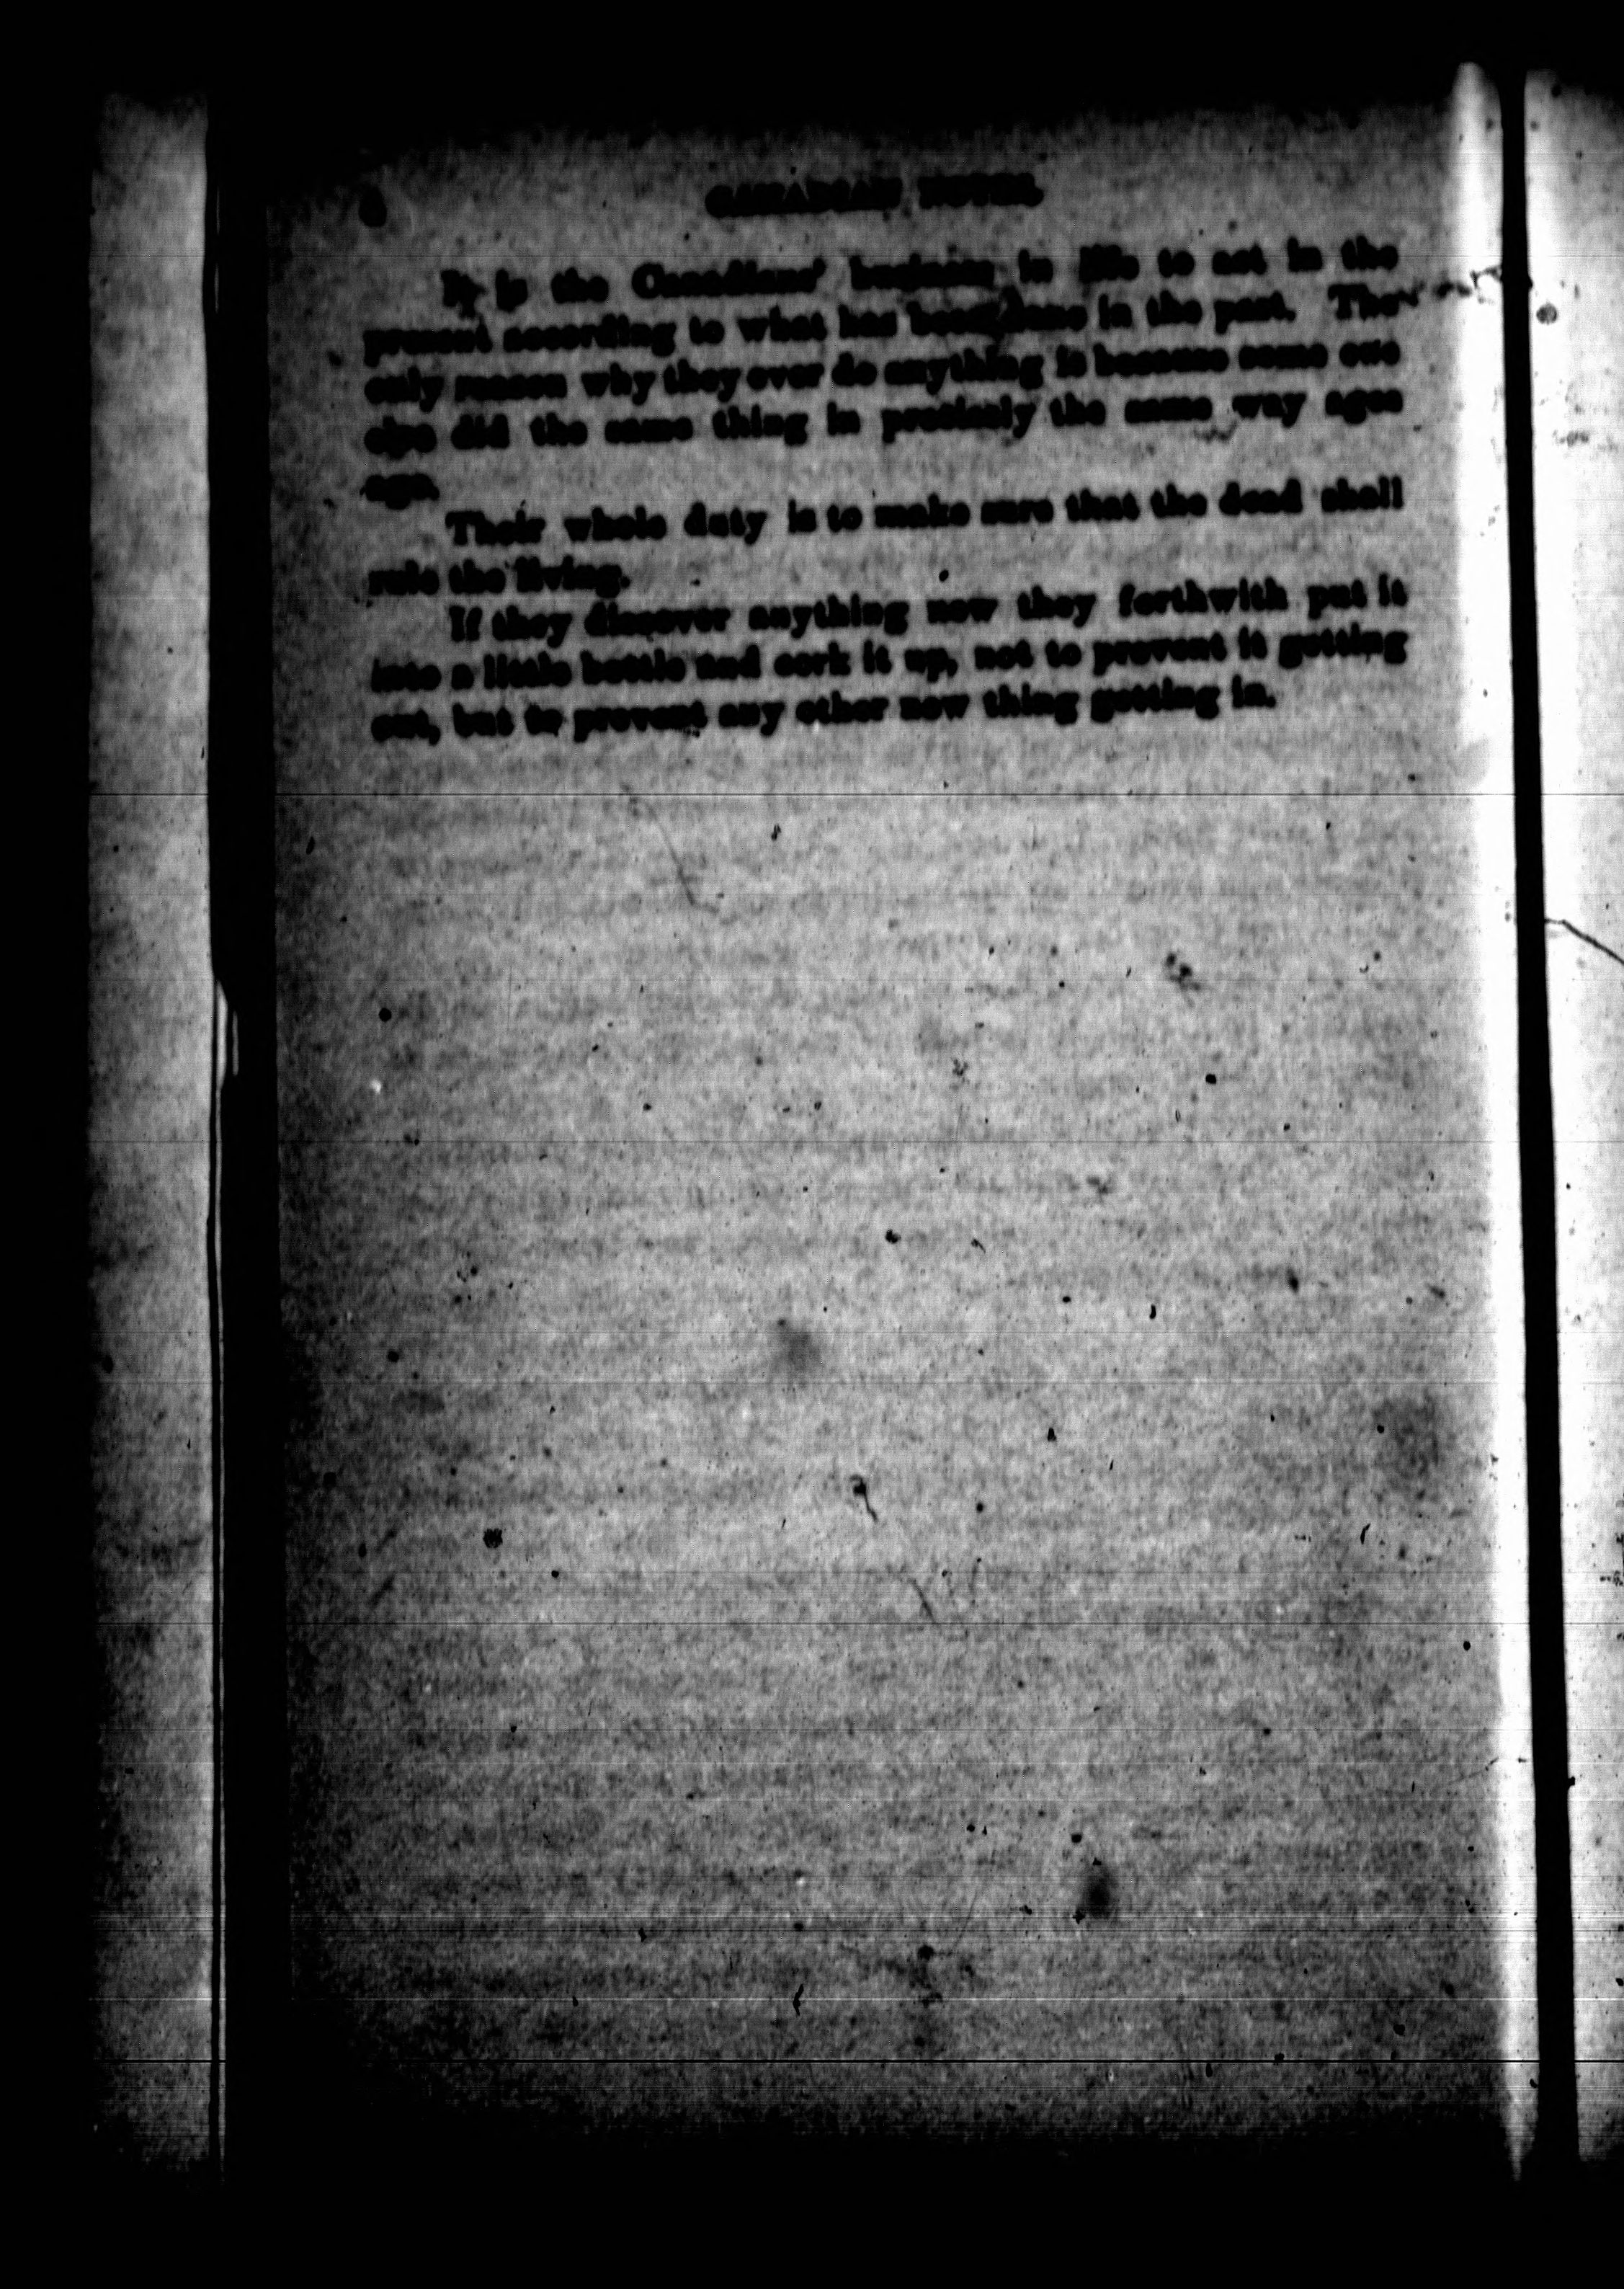 CANADIAN NOTES.
It is the Canadians' business in life to act in the
present according to what has been done in the past. The
only reason why they ever do anything is because some one
else did the same thing in precisely the same way ages
ago.
Their whole duty is to make sure that the dead shall
rule the living.
If they discover anything new they forthwith put it
into a little bottle and cork it up, not to prevent it getting
out, but to prevent any other new thing getting in.